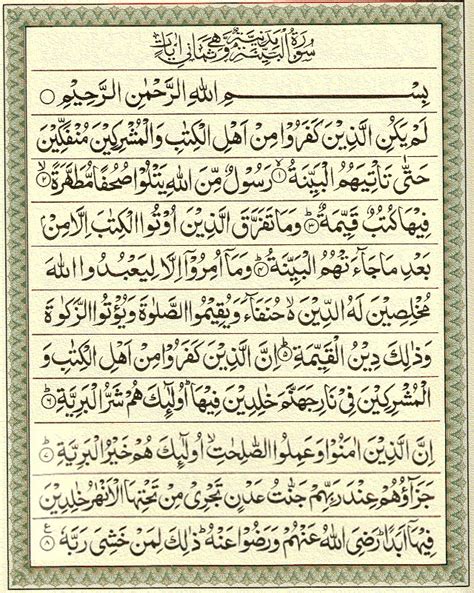 سورة البينة مدنية وهي ثماني ايات
بِسْمِ اللهِ الرَّحْمٰنِ الرَّحِيْمِ ○
لَمْ يَكُنِ الَّذِيْنَ كَفَرُوْا مِنْ اَهْلِ الْكِتٰبِ وَالْمُشْرِكِيْنَ مُنْفَكِّيْنَ
حَتّٰى تَاْتِيَهُمُ الْبَيِّنَةُ ۙ﴿۱﴾ رَسُوْلٌ مِّنَ اللهِ يَتْلُوْا صُحُفًا مُّطَهَّرَةً ۙ﴿۲﴾
فِيْهَا كُتُبٌ قَيِّمَةٌ ؕ﴿۳﴾ وَمَا تَفَرَّقَ الَّذِيْنَ اُوْتُوا الْكِتٰبَ اِلَّا مِنْۢ
بَعْدِ مَا جَآءَتْهُمُ الْبَيِّنَةُ ؕ﴿۴﴾ وَمَاۤ اُمِرُوْۤا اِلَّا لِيَعْبُدُوا اللهَ
مُخْلِصِيْنَ لَهُ الدِّيْنَ ۙ۬ حُنَفَآءَ وَيُقِيْمُوا الصَّلٰوةَ وَيُؤْتُوا الزَّكٰوةَ
وَذٰلِكَ دِيْنُ الْقَيِّمَةِ ؕ﴿۵﴾ اِنَّ الَّذِيْنَ كَفَرُوْا مِنْ اَهْلِ الْكِتٰبِ وَ
الْمُشْرِكِيْنَ فِيْ نَارِ جَهَنَّمَ خٰلِدِيْنَ فِيْهَا ؕ اُولٰٓئِكَ هُمْ شَرُّ الْبَرِيَّةِ ؕ﴿۶﴾
اِنَّ الَّذِيْنَ اٰمَنُوْا وَعَمِلُوا الصّٰلِحٰتِ ۙ اُولٰٓئِكَ هُمْ خَيْرُ الْبَرِيَّةِ ؕ﴿۷﴾
جَزَآؤُهُمْ عِنْدَ رَبِّهِمْ جَنّٰتُ عَدْنٍ تَجْرِيْ مِنْ تَحْتِهَا الْاَنْهٰرُ خٰلِدِيْنَ
فِيْهَاۤ اَبَدًا ؕ رَضِيَ اللهُ عَنْهُمْ وَرَضُوْا عَنْهُ ؕ ذٰلِكَ لِمَنْ خَشِيَ رَبَّهٗ ﴿۸﴾ ع